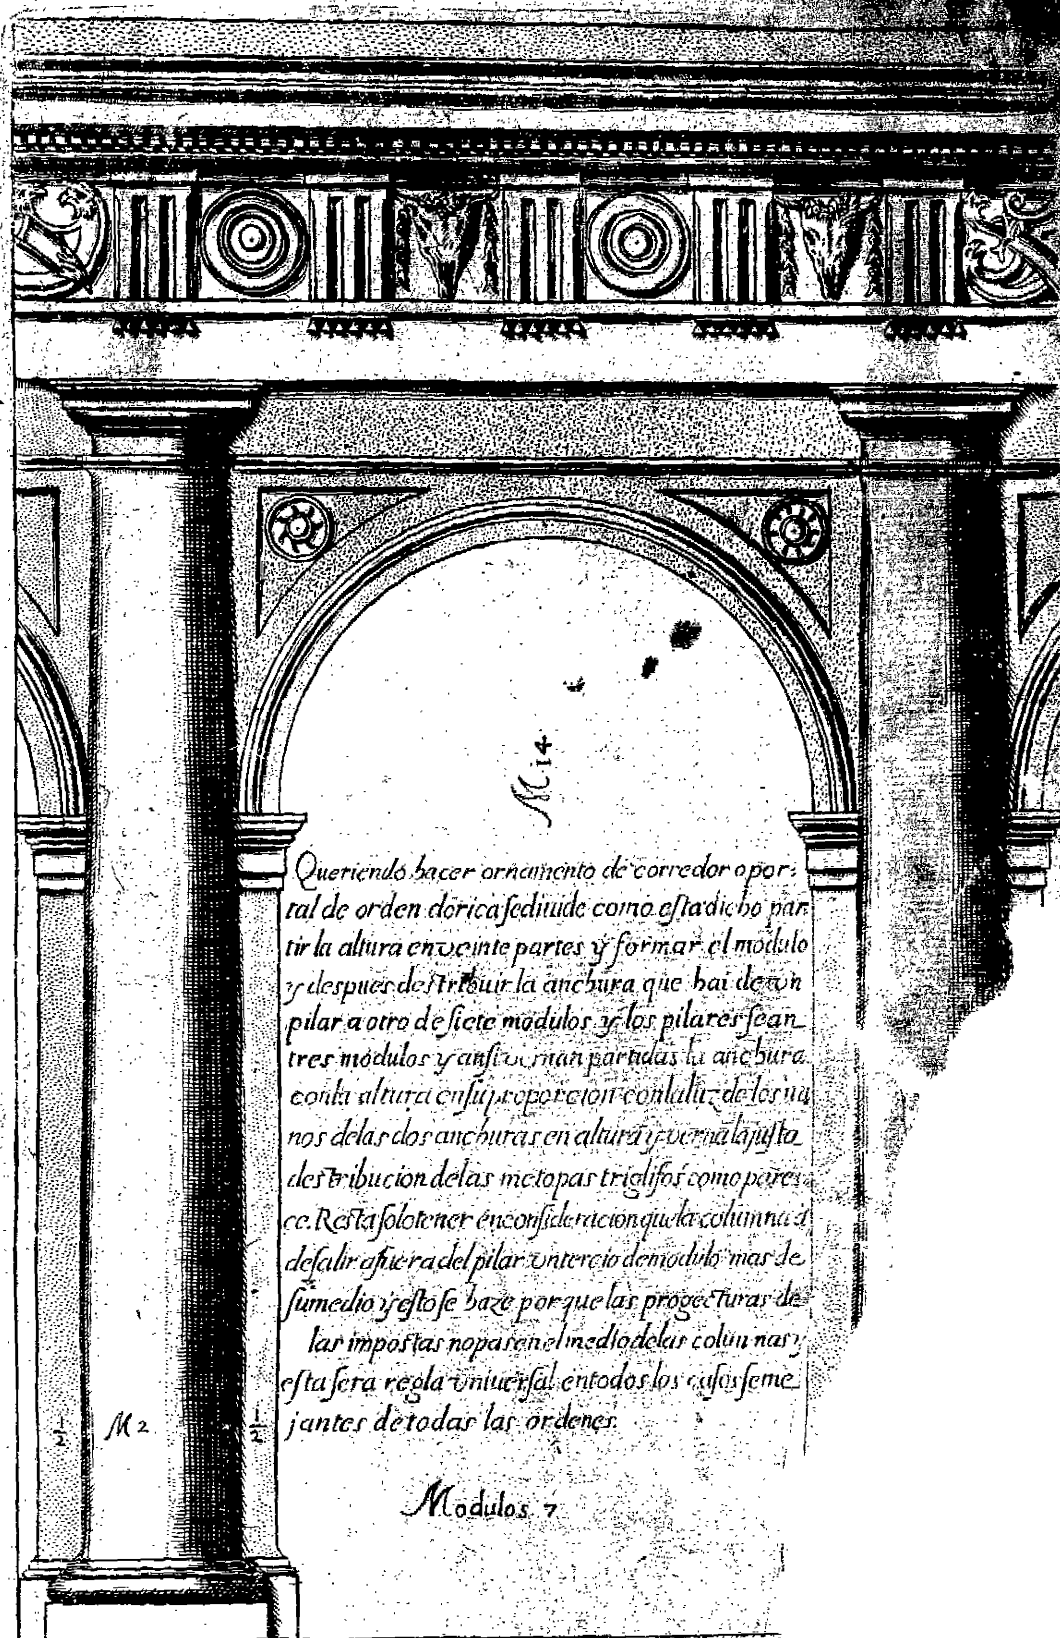 M 14
Queriendo hacer ornamento de corredor o por:
tal de orden dorica se diuide como esta dicho par
tir la altura en veinte partes y formar el modulo
y despues destribuir la anchura que hai de vn
pilar a otro de siete modulos y los pilares sean
tres modulos y ansi vernan partidas la anchura
con la altura en su proporcion con la luz de los va
nos de las dos anchuras en altura y verna la justa
destribucion de las metopas triglifos como pares:
ce. Resta solo tener en consideracion que la columna a
de salir a fuera del pilar vn tercio de modulo mas de
su medio y esto se haze por que las progecturas de
las impostas no pasen el medio de las colunnas y
esta sera regla vniuersal en todos los casos seme
jantes de todas las ordenes.
1/2 M 2 1/2
Modulos 7